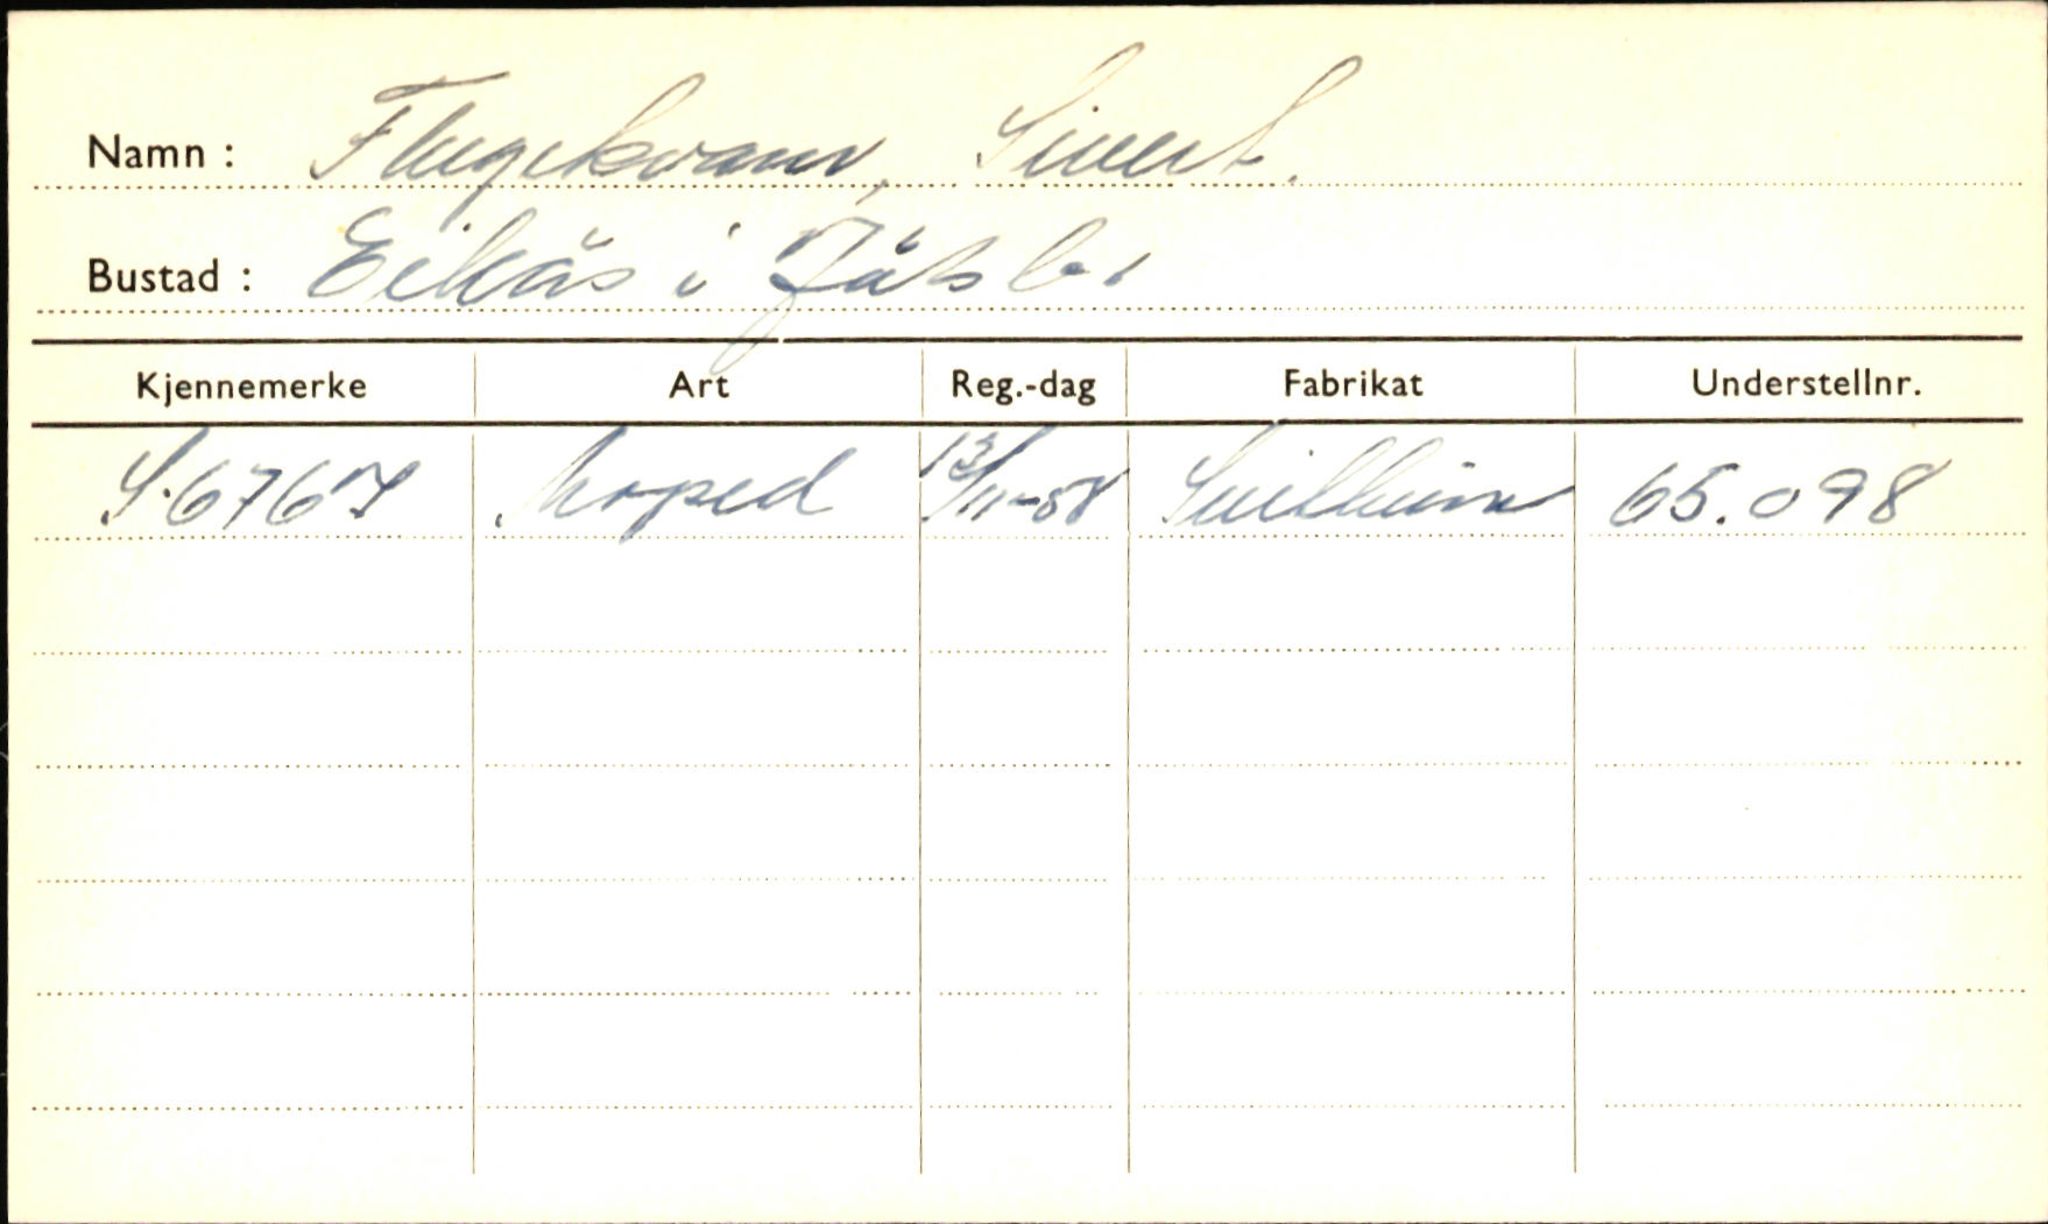 Namn : Flugekvam, Sivert.
Bustad : Eikås i Jölst
Kjennemerke Art Reg.-dag Fabrikat Understellnr.
S.6767 Moped 13/11-58 65.098